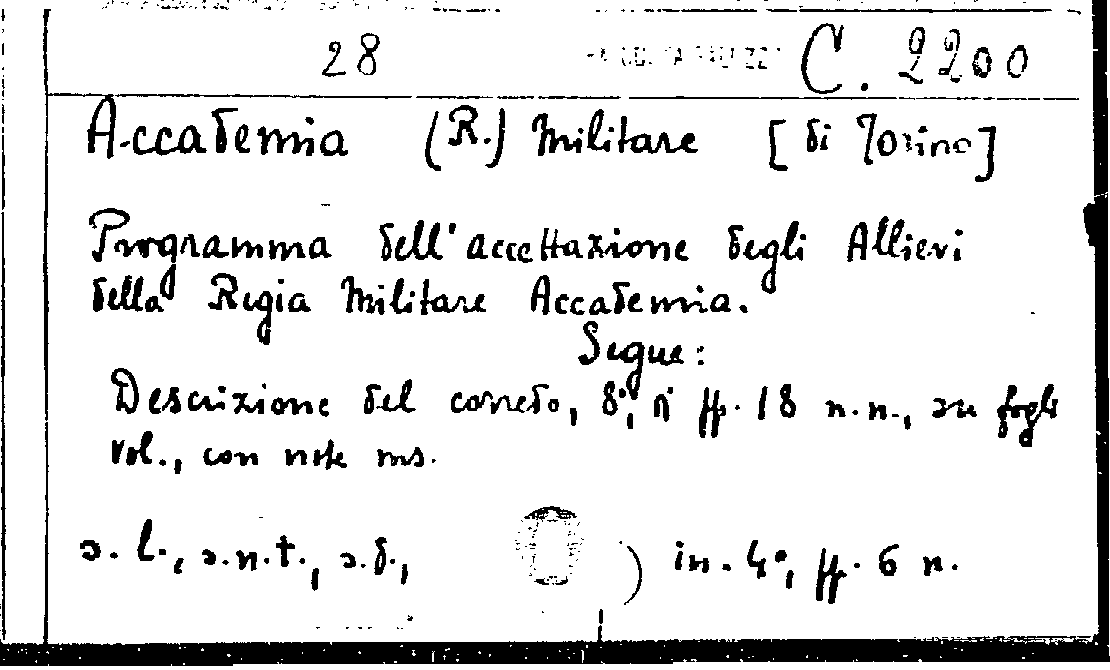 28 C. 2200
Accademia (R.) Militare [di Torino]
Programma dell'accettazione degli Allieri
della Regia Militare Accademia.
Segue:
Descrizione del corredo, 8°, di pp. 18 n.n., su fogli
vol., con note ms.
s.l., s.n.t., s.d., ) in-4°, pp. 6 n.